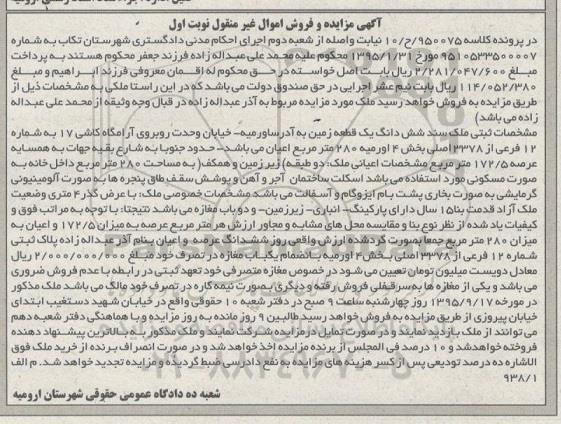 آگهی مزایده و فروش اموال غیر منقول نوبت اول
در پرونده کلاسه ۹۵۰۰۷۵/ح/۱۰ نیابت واصله از شعبه دوم اجرای احکام مدنی دادگستری شهرستان تکاب به شماره
۹۵۱۰۵۳۳۵۰۰۰۰۷ مورخ ۱۳۹۵/۱/۳۱ محکوم علیه محمد علی عبداله زاده فرزند جعفر محکوم هستند به پرداخت
مبلغ ۲/۲۸۱/۰۴۷/۶۰۰ ریال بابت اصل خواسته در حق محکوم له لقمان معروفی فرزند ابراهیم و مبلغ
۱۱۴/۰۵۲/۳۸۰ ریال بابت نیم عشر اجرایی در حق صندوق دولت می باشد که در این راستا ملکی به مشخصات ذیل از
طریق مزایده به فروش خواهد رسید ملک مورد مزایده مربوط به آذر عبداله زاده در قبال وجه وثیقه از محمد علی عبداله
زاده می باشد)
مشخصات ثبتی ملک: سند شش دانگ یک قطعه زمین به آدرس ارومیه- خیابان وحدت روبروی آرامگاه کاشی ۱۷ به شماره
۱۲ فرعی از ۳۳۷۸ اصلی بخش ۴ ارومیه ۲۸۰ متر مربع اعیان می باشد- حدود جنوبا به شارع بقیه جهات به همسایه
عرصه ۱۷۲/۵ متر مربع مشخصات اعیانی ملک: دو طبقه( زیرزمین و همکف( به مساحت ۲۸۰ متر مربع داخل خانه به
صورت مسکونی مورد استفاده می باشد اسکلت ساختمان آجر و آهن و پوشش سقف طاق پنجره ها به صورت آلومینیومی
گرمایشی به صورت بخاری پشت بام ایزوگام و آسفالت می باشد مشخصات خصوصی ملک: با عرض گذر ۴ متری وضعیت
ملک آزاد قدمت بنا ۱۵ سال دارای پارکینگ- انباری- زیرزمین- و دو باب مغازه می باشد نتیجتا: با توجه به مراتب فوق و
کیفیات یاد شده از نظر نوع بنا و مقایسه محل های مشابه و مجاور ارزش هر متر مربع عرصه به میزان ۱۷۲/۵ و اعیان به
میزان ۲۸۰ متر مربع جمعا بصورت کرد شده ارزش واقعی روز ششدانگ عرصه و اعیان بنام آذر عبداله زاده پلاک ثبتی
شماره ۱۲ فرعی از ۳۳۷۸ اصلی بخش ۴ ارومیه با انضمام یکباب مغازه در تصرف خود مبلغ ۲/۰۰۰/۰۰۰/۰۰۰ ریال
معادل دویست میلیون تومان تعیین می شود در خصوص مغازه متصرفی خود تعهد ثبتی در رابطه با عدم فروش ضروری
می باشد و یکی از مغازه ها به سرقفلی فروش رفته و دیگری بصورت نیمه کاره در تصرف خود مالک می باشد ملک مذکور
در مورخه ۱۳۹۵/۹/۱۷ روز چهارشنبه ساعت ۹ صبح در دفتر شعبه ۱۰ حقوقی واقع در خیابان شهید دستغیب ابتدای
خیابان پیروزی از طریق مزایده به فروش خواهد رسید طالبین ۹ روز مانده به روز مزایده و با هماهنگی دفتر شعبه دهم
می توانند از ملک بازدید نمایند و در صورت تمایل در مزایده شرکت نمایند و ملک مذکور به بالاترین پیشنهاد دهنده
فروخته خواهد شد و ۱۰ درصد فی المجلس از برنده مزایده اخذ خواهد شد و در صورت انصراف برنده از خرید ملک فوق
الاشاره ده درصد تودیعی پس از کسر هزینه های مزایده به نفع دادرسی ضبط گردیده و مزایده تجدید خواهد شد. م الف
۹۳۸/۱
شعبه ده دادگاه عمومی حقوقی شهرستان ارومیه